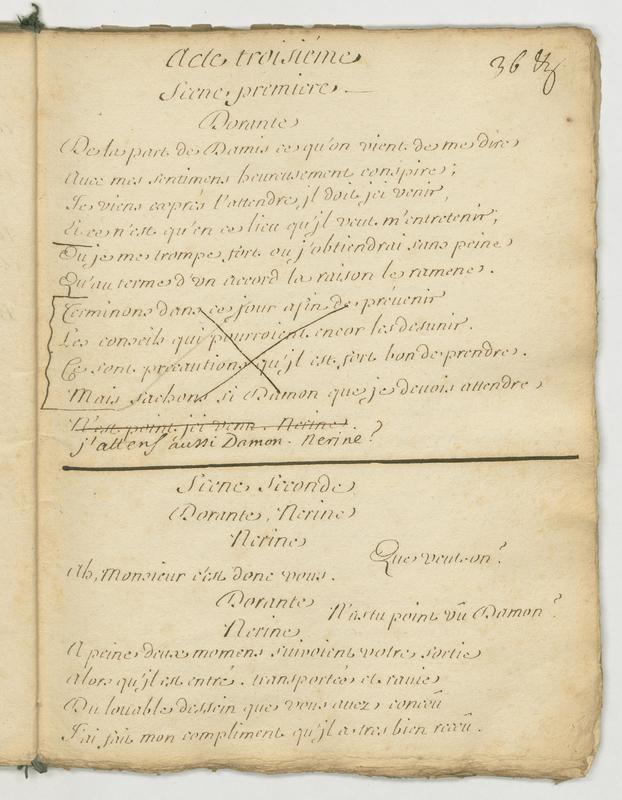 Acte troisiéme
36
Scene premiere
Dorante
De la part de Damis ce qu'on vient de me dire
Avec mes sentimens heureusement conspire;
Je viens exprés l'attendre, jl doit jci venir,
Et ce n'est qu'en ce lieu qu'jl veut m'entretenir;
Ou je me trompe fort ou j'obtiendrai sans peine
Qu'au terme d'un accord la raison le ramene.
Terminons dans ce jour afin de prévenir
Les conseils qui pourroient encor les desunir.
Ce sont precautions qu'jl est fort bon de prendre.
Mais sachons si Damon que je devois attendre
N'est point jci venu. Nerine.
j'attens aussi Damon. Nerine?
Scene Seconde
Dorante, Nerine
Nerine
Que veut-on?
Ah, Monsieur c'est donc vous.
Dorante
N'as tu point vû Damon?
Nerine
A peine deux momens suivoient votre sortie
Alors qu'jl est entré. transportée et ravie
Du louable dessein que vous avez conceû
J'ai fait mon compliment qu'jl a tres bien receû.